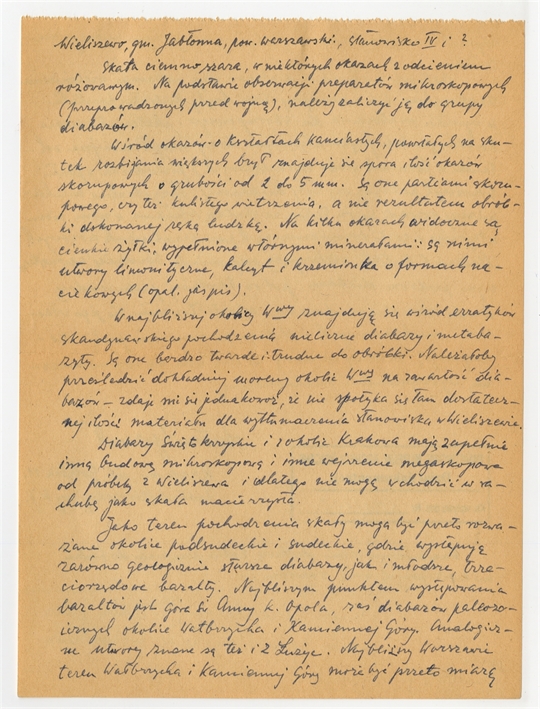 Wieliszewo, gm. Jabłonna, pow. warszawski, stanowisko IV i ?
Skała ciemno szara, w niektórych okazach z odcieniem
różowawym. Na podstawie obserwacji preparatów mikroskopowych
(przeprowadzonych przed wojną), należy zaliczyć ją do grupy
diabazów.
Wśród okazów o kształtach kanciastych, powstałych na sku-
tek rozbijania większych brył znajduje się spora ilość okazów
skorupowych o grubości od 2 do 5 mm. Są one partiami skoru-
powego, czy też kulistego wietrzenia, a nie rezultatem obrób-
ki dokonanej ręką ludzką. Na kilku okazach widoczne są
cienkie żyłki, wypełnione wtórnymi minerałami: są nimi
utwory limonityczne, kalcyt i krzemionka o formach na-
ciekowych (opal, jaspis).
W najbliższej okolicy Wwy znajdują się wśród erratyków
skandynawskiego pochodzenia nieliczne diabazy i metaba-
zyty. Są one bardzo twarde i trudne do obróbki. Należałoby
prześledzić dokładniej moreny okolic Wwy na zawartość dia-
bazów – zdaje mi się jednakowoż, że nie spotyka się tam dostatecz-
nej ilości materiału dla wytłumaczenia stanowiska w Wieliszewie.
Diabazy Świętokrzyskie i z okolic Krakowa mają zupełnie
inną budowę mikroskopową i inne wejrzenie megaskopowe
od próbek z Wieliszewa i dlatego nie mogą wchodzić w ra-
chubę jako skała macierzysta.
Jako teren pochodzenia skały mogą być przeto rozwa-
żane okolice podsudeckie i sudeckie, gdzie występują
zarówno geologicznie starsze diabazy, jak i młodsze, trze-
ciorzędowe bazalty. Najbliższym punktem występowania
bazaltów jest góra Św. Anny k. Opola, zaś diabazów paleozo-
icznych okolice Wałbrzycha i Kamiennej Góry. Analogicz-
ne utwory znane są też i z Łużyc. Najbliższy Warszawie
teren Wałbrzycha i Kamiennej Góry może być przeto miarą